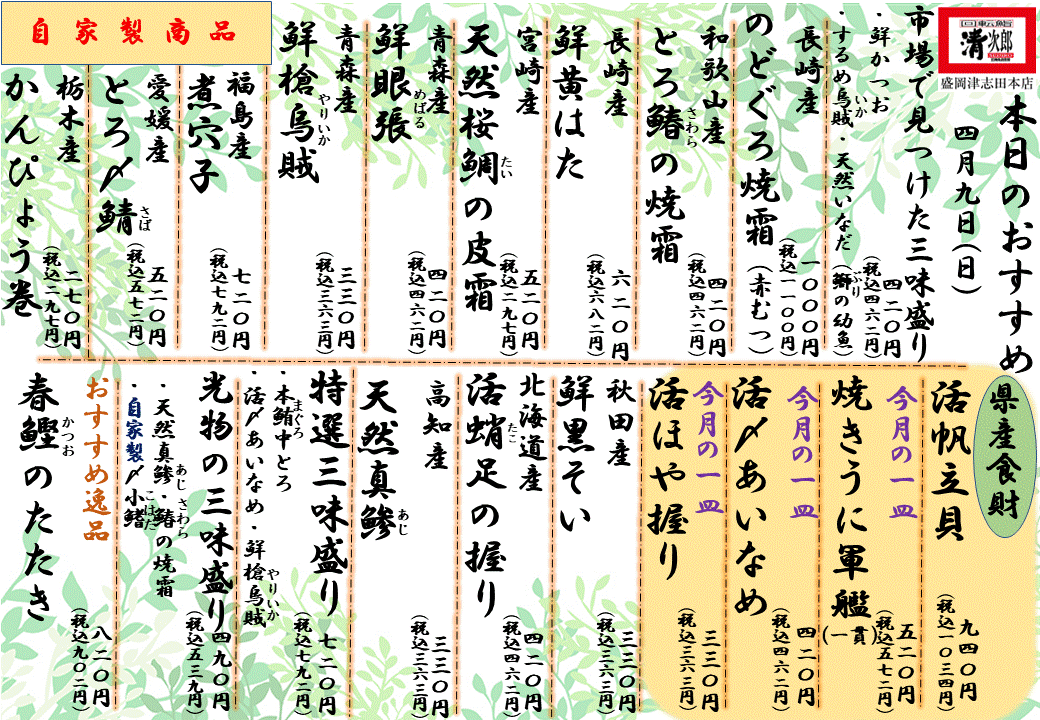 回転鮨
清次郎
盛岡津志田本店
本日のおすすめ
四月九日(日)
市場で見つけた三味盛り
・鮮かつお
・するめ烏賊・天然いなだ
いか
(鰤の幼魚)
ぶり
四二〇円
(税込四六二円)
長崎産
のどぐろ焼霜(赤むつ)
一〇〇〇円
(税込一一〇〇円)
和歌山産
とろ鰆の焼霜
さわら
四二〇円
(税込四六二円)
長崎産
鮮黄はた
六二〇円
(税込六八二円)
宮崎産
天然桜鯛の皮霜
たい
五二〇円
(税込二九七円)
青森産
鮮眼張
めばる
四二〇円
(税込四六二円)
青森産
鮮槍烏賊
やりいか
三三〇円
(税込三六三円)
自家製商品
福島産
煮穴子
七二〇円
(税込七九二円)
愛媛産
とろ〆鯖
さば
五二〇円
(税込五七二円)
栃木産
かんぴょう巻
二七〇円
(税込二九七円)
県産食財
活帆立貝
九四〇円
(税込一〇三四円)
今月の一皿
焼きうに軍艦(一貫)
五二〇円
(税込五七二円)
今月の一皿
活〆あいなめ
四二〇円
(税込四六二円)
今月の一皿
活ほや握り
三三〇円
(税込三六三円)
秋田産
鮮黒そい
三三〇円
(税込三六三円)
北海道産
活蛸足の握り
たこ
四二〇円
(税込四六二円)
高知産
天然真鯵
あじ
三三〇円
(税込三六三円)
特選三味盛り
・本鮪中とろ
まぐろ
・活〆あいなめ・鮮槍烏賊
やりいか
七二〇円
(税込七九二円)
光物の三味盛り
・天然真鯵・鰆の焼霜
あじ さわら
・自家製〆小鰭
こはだ
四九〇円
(税込五三九円)
おすすめ逸品
春鰹のたたき
かつお
八二〇円
(税込九〇二円)